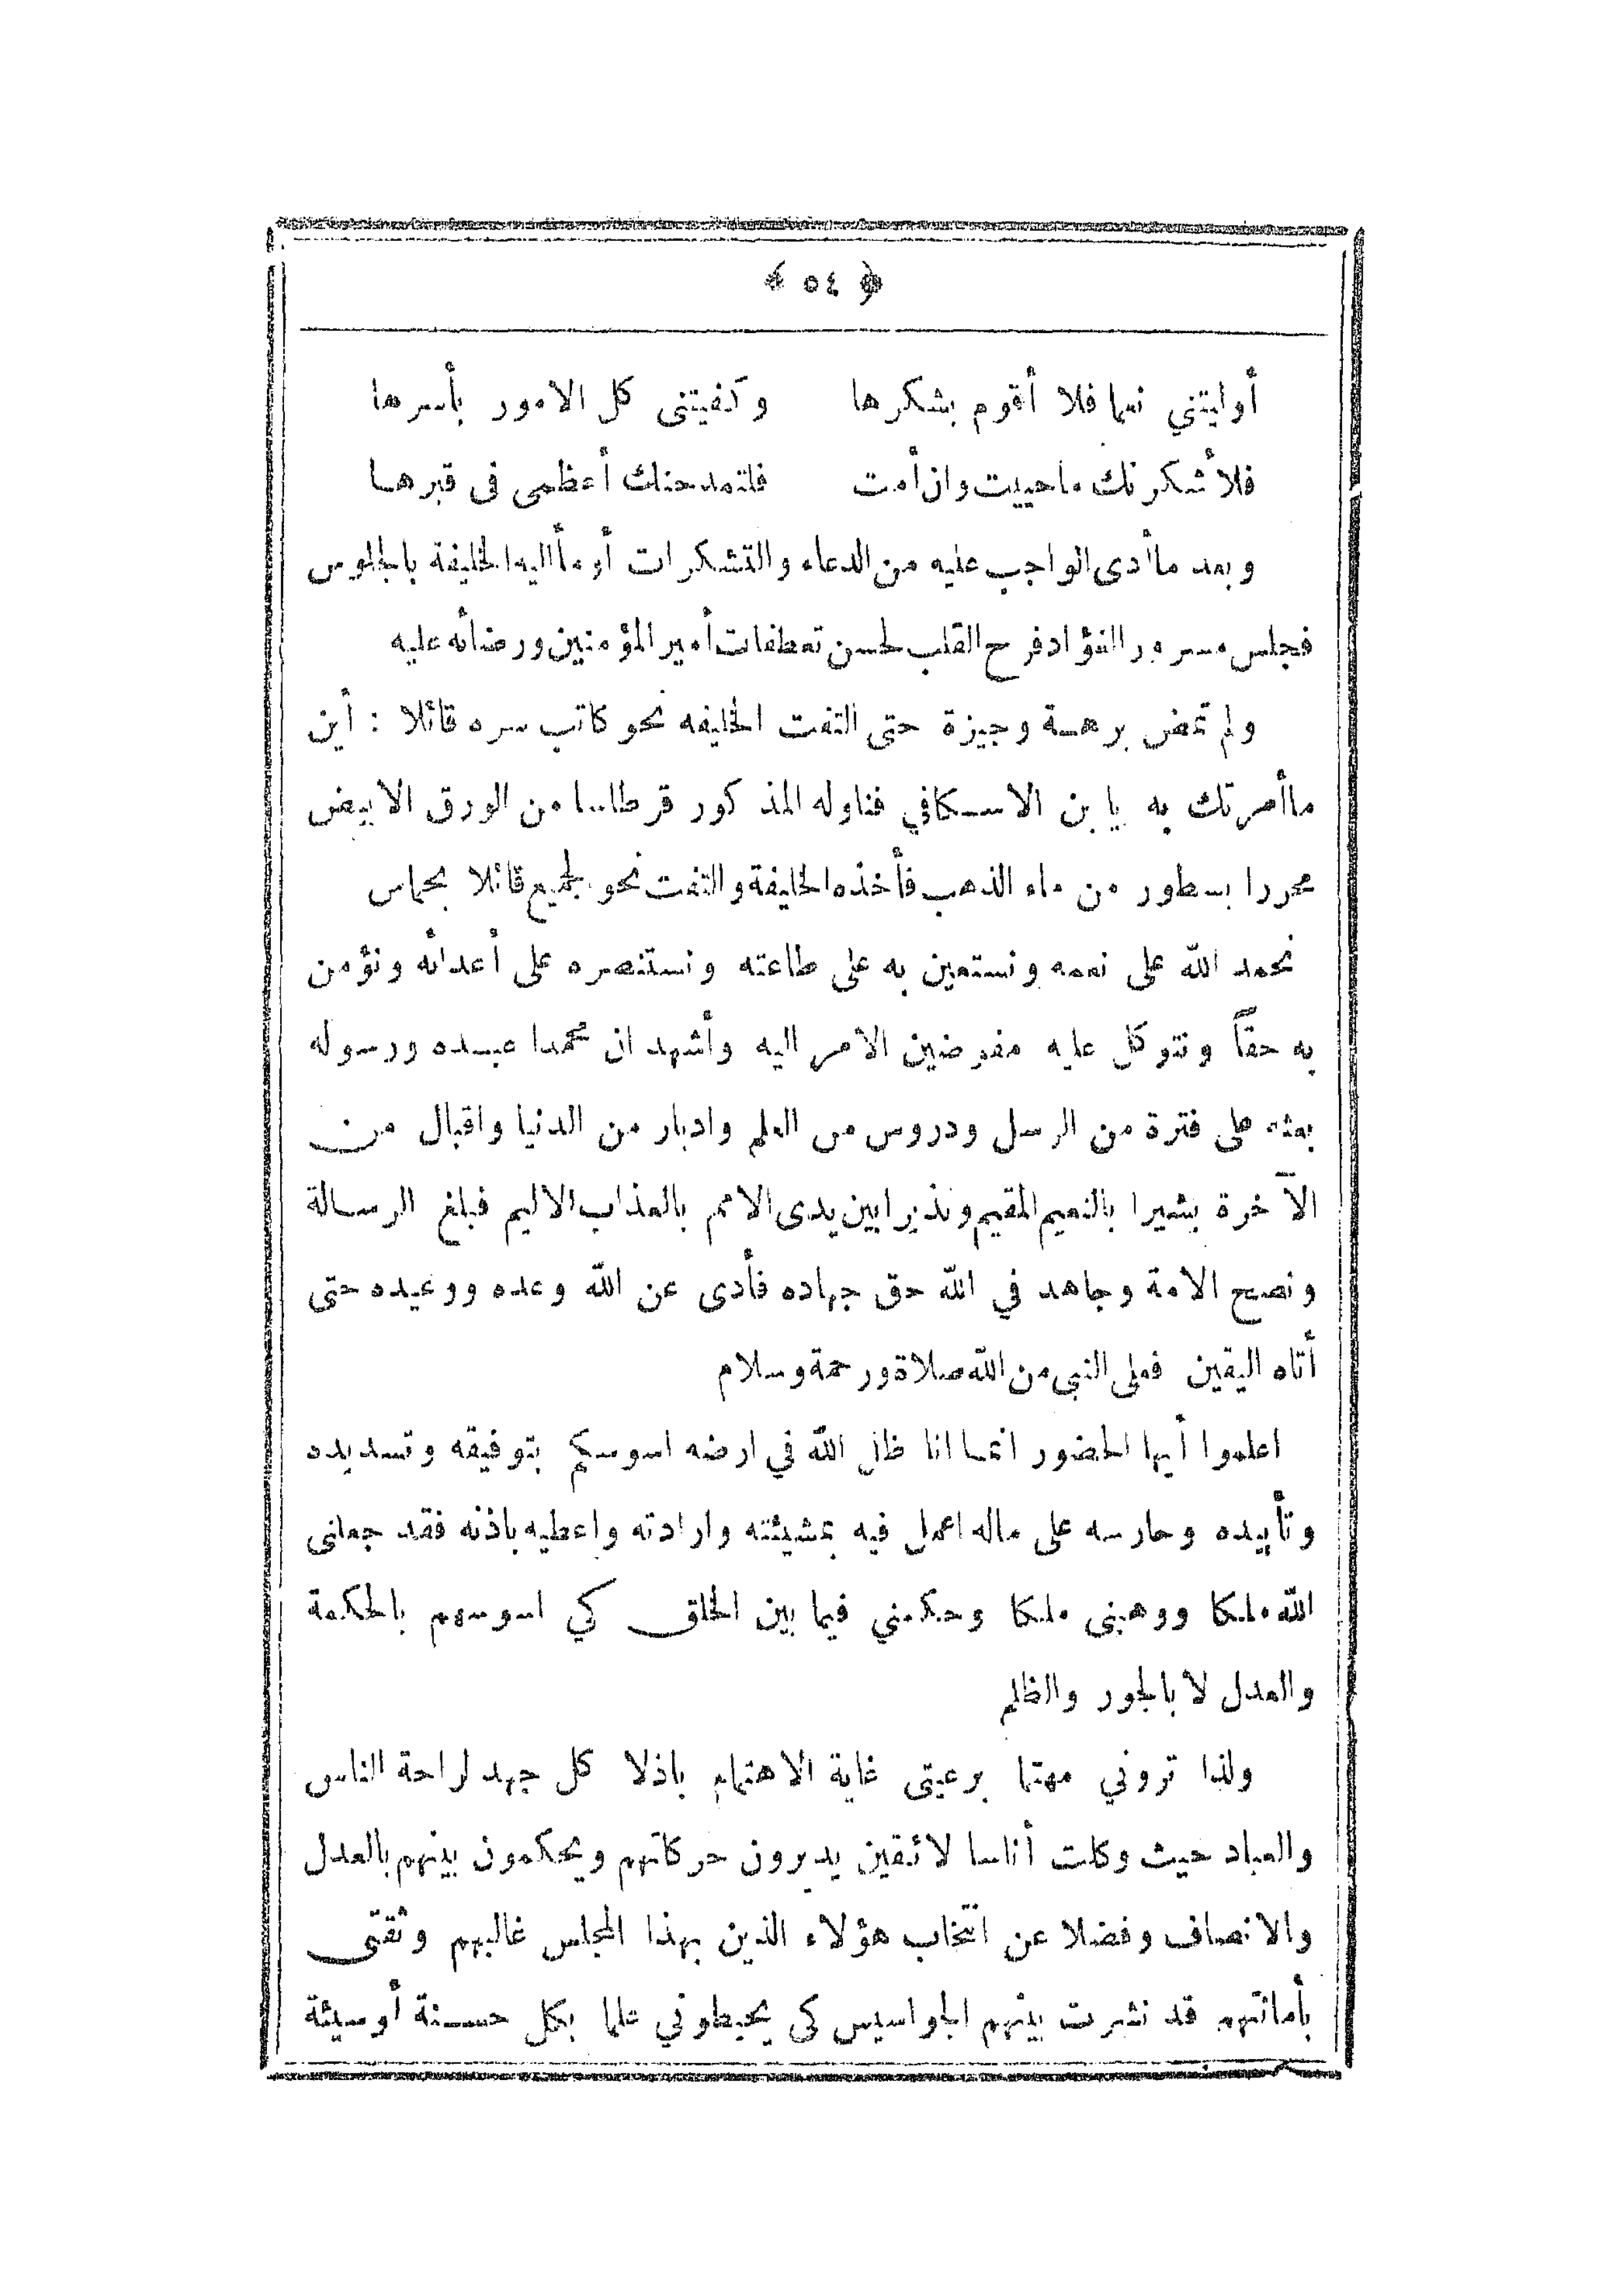 ﴿ ٥٤ ﴾
أوليتني نعما فلا أقوم بشكرها وكفيتنى كل الامور بأسرها
فلأشكرنك ماحييت وان أمت فلتمدحنك أعظمى فى قبرها
وبعد ماأدى الواجب عليه من الدعاء والتشكرات أومأ اليه الخليفة بالجلوس
فجلس مسرور الفؤاد فرح القلب لحسن تعطفات أمير المؤمنين ورضائه عليه
ولم تمض برهة وجيزة حتى التفت الخليفه نحو كاتب سره قائلا : أين
ماأمرتك به يا بن الاسكافي فناوله المذكور قرطاسا من الورق الابيض
محررا بسطور من ماء الذهب فأخذه الخليفة والتفت نحو الجميع قائلا بحماس
نحمد الله على نعمه ونستعين به على طاعته ونستنصره على أعدائه ونؤمن
به حقاً ونتوكل عليه مفوضين الامر اليه وأشهد ان محمدا عبده ورسوله
بعثه على فترة من الرسل ودروس من العلم وادبار من الدنيا واقبال من
الآخرة بشيرا بالنعيم المقيم ونذيرا بين يدى الامم بالعذاب الاليم فبلغ الرسالة
ونصح الامة وجاهد في الله حق جهاده فأدى عن الله وعده ووعيده حتى
أتاه اليقين فعلى النبى من الله صلاة ورحمة وسلام
اعلموا أيها الحضور انما انا ظل الله في ارضه اسوسكم بتوفيقه وتسديده
وتأييده وحارسه على ماله اعمل فيه بمشيئته وارادته واعطيه باذنه فقد جعلنى
الله ملكا ووهبنى ملكا وحكمني فيما بين الخلق كي اسوسهم بالحكمة
والعدل لا بالجور والظلم
ولذا تروني مهتما برعيتى غاية الاهتمام باذلا كل جهد لراحة الناس
والعباد حيث وكلت أناسا لائقين يديرون حركاتهم ويحكمون بينهم بالعدل
والانصاف وفضلا عن انتخاب هؤلاء الذين بهذا المجلس غالبهم وثقتى
بأمانتهم قد نشرت بينهم الجواسيس كى يحيطوني علما بكل حسنة أوسيئة